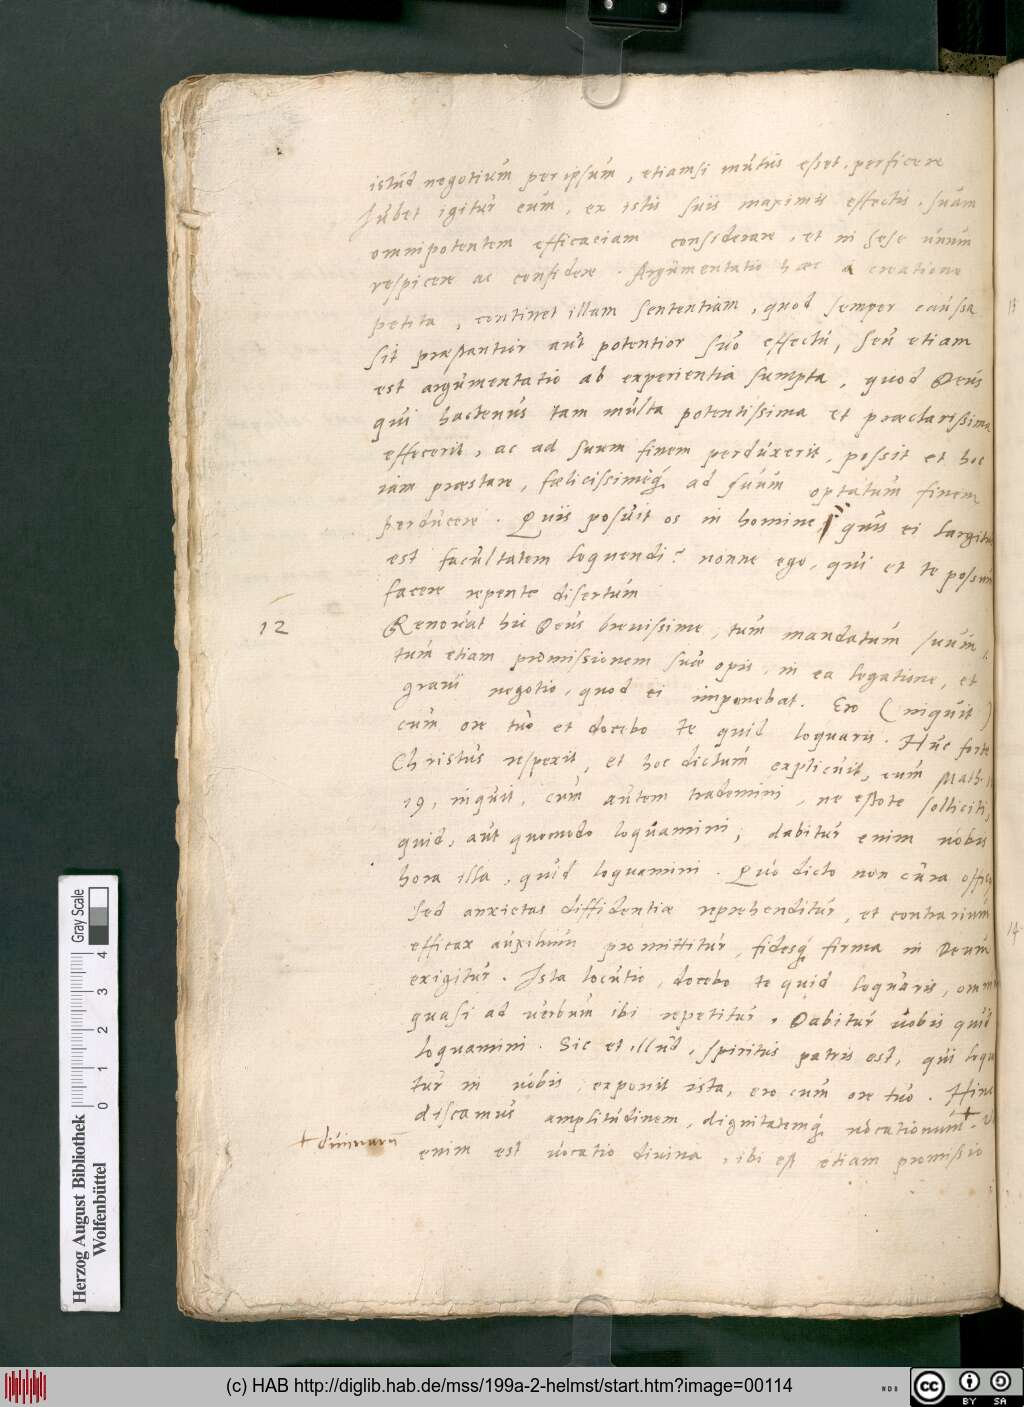 istud negotium per ipsum, etiamsi mutus esset, perficere
Iubet igitur eum, ex istis suis maximis effectis, suam
omnipotentem efficaciam considerare, et in sese unum
respicere ac confidere. Argumentatio hæc a creatione
petita, continet illam sententiam, quod semper caussa
sit præstantior aut potentior suo effectu, seu etiam
est argumentatio ab experientia sumpta, quod Deus
qui hactenus tam multa potentissima et præclarissima
effecerit, ac ad suum finem perduxerit, possit et hoc
iam præstare, fœlicissimeq́ ad suum optatum finem
perducere. Quis posuit os in homine, quis ei largitus
est facultatem loquendi? nonne ego, qui et te possum
facere repente disertum
12
Renovat hic Deus brevissime, tum mandatum suum,
tum etiam promissionem suæ opis, in ea legatione, et
gravi negotio, quod ei imponebat. Ero (inquit)
cum ore tuo et docebo te quid loquaris. Huc forte
Christus respexit, et hoc dictum explicuit, cum Math.
19, inquit, cum autem trademini, ne estote solliciti,
quid, aut quomodo loquamini, dabitur enim vobis
hora illa, quid loquamini. Quo dicto non cura
sed anxietas diffidentiæ reprehenditur, et contrarium
efficax auxilium promittitur, fidesq́ firma in Deum
exigitur. Ista locutio, docebo te quid loquaris,
quasi ad verbum ibi repetitur, Dabitur vobis quid
loquamini. Sic et illud, spiritus patris est, qui loqui
tur in vobis, exponit ista, ero cum ore tuo. Hinc
discamus amplitudinem, dignitatemq́ vocationum +.
+ divinarum
enim est vocatio divina, ibi est etiam promissio
13
14
Gray Scale
0 1 2 3 4
Herzog August Bibliothek
Wolfenbüttel
(c) HAB http://diglib.hab.de/mss/199a-2-helmst/start.htm?image=00114
cc BY SA